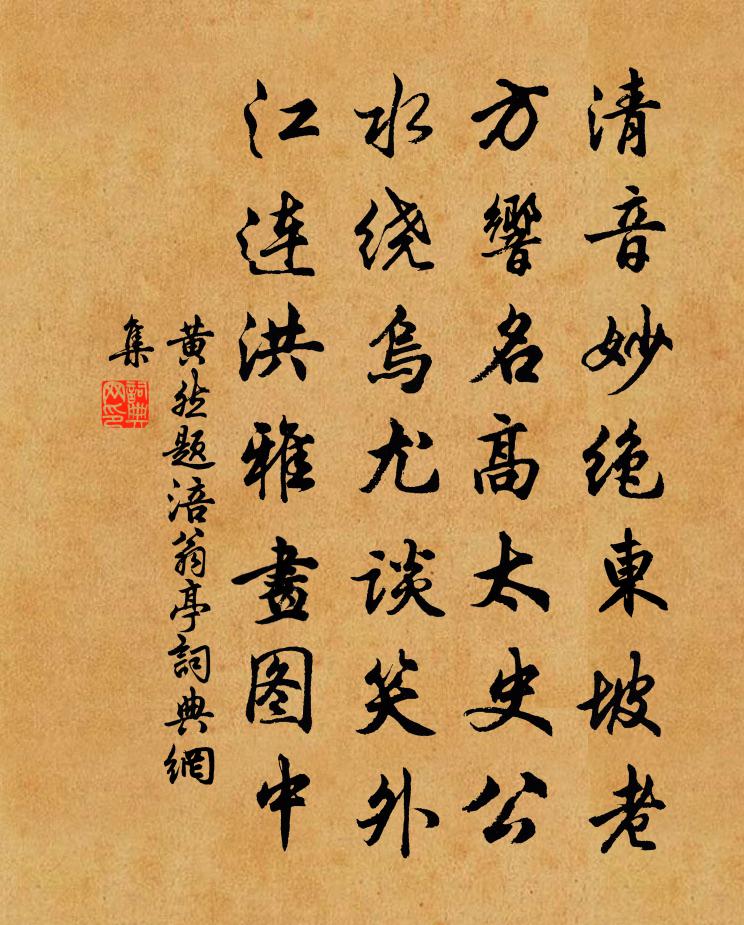 清音妙绝東坡老
方響名高太史公
水绕烏尤谈笑外
江连洪雅畫图中
黄然题涪翁亭詞典網
集
詞典
网印